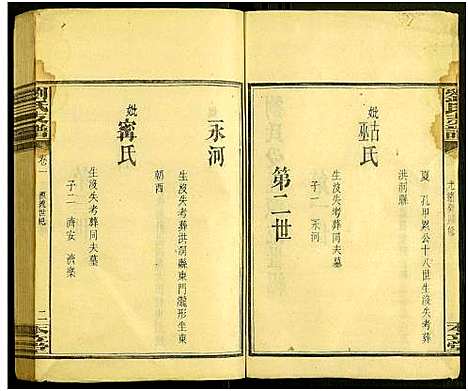 劉氏宗譜
夏 孔甲累公十八世生沒失考葬
洪洞縣
妣 姑氏
生沒失考葬同夫墓
子一 永河
第二世
一永河
生沒失考葬洪洞縣東門龍形坐東
朝酉
妣 甯氏
生沒失考葬同夫墓
子二 濟安 濟樂
劉氏宗譜
卷一
源流世紀
二